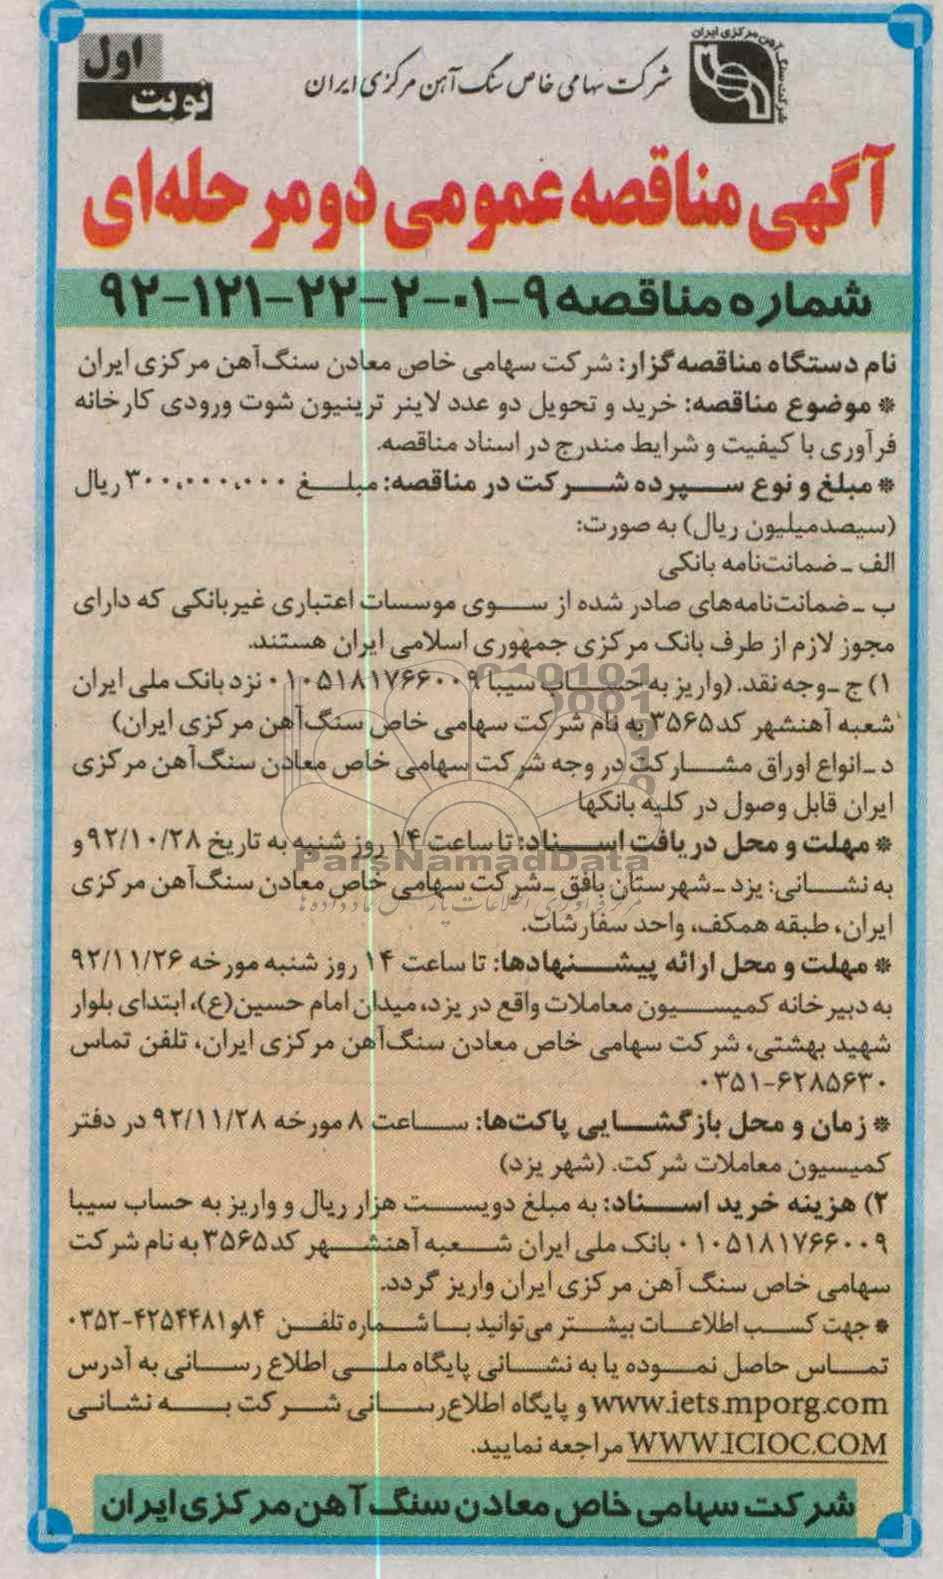 شرکت سنگ آهن مرکزی ایران
شرکت سهامی خاص سنگ آهن مرکزی ایران
نوبت اول
آگهی مناقصه عمومی دو مرحله‌ای
شماره مناقصه ۹-۰۱-۲-۲۲-۱۲۱-۹۲
نام دستگاه مناقصه گزار: شرکت سهامی خاص معادن سنگ‌آهن مرکزی ایران
* موضوع مناقصه: خرید و تحویل دو عدد لاینر ترینیون شوت ورودی کارخانه
فرآوری با کیفیت و شرایط مندرج در اسناد مناقصه.
* مبلغ و نوع سپرده شرکت در مناقصه: مبلغ ۳۰۰،۰۰۰،۰۰۰ ریال
(سیصدمیلیون ریال) به صورت:
الف ـ ضمانت‌نامه بانکی
ب ـ ضمانت‌نامه‌های صادر شده از سوی موسسات اعتباری غیربانکی که دارای
مجوز لازم از طرف بانک مرکزی جمهوری اسلامی ایران هستند.
۱) ج ـ وجه نقد. (واریز به حساب سیبا ۰۱۰۵۱۸۱۷۶۶۰۰۹ نزد بانک ملی ایران
شعبه آهنشهر کد ۳۵۶۵ به نام شرکت سهامی خاص سنگ‌آهن مرکزی ایران)
د ـ انواع اوراق مشارکت در وجه شرکت سهامی خاص معادن سنگ‌آهن مرکزی
ایران قابل وصول در کلیه بانکها
* مهلت و محل دریافت اسناد: تا ساعت ۱۴ روز شنبه به تاریخ ۹۲/۱۰/۲۸ و
به نشانی: یزد ـ شهرستان بافق ـ شرکت سهامی خاص معادن سنگ‌آهن مرکزی
ایران، طبقه همکف، واحد سفارشات.
* مهلت و محل ارائه پیشنهادها: تا ساعت ۱۴ روز شنبه مورخه ۹۲/۱۱/۲۶
به دبیرخانه کمیسیون معاملات واقع در یزد، میدان امام حسین(ع)، ابتدای بلوار
شهید بهشتی، شرکت سهامی خاص معادن سنگ‌آهن مرکزی ایران، تلفن تماس
۰۳۵۱-۶۲۸۵۶۳۰
* زمان و محل بازگشایی پاکت‌ها: ساعت ۸ مورخه ۹۲/۱۱/۲۸ در دفتر
کمیسیون معاملات شرکت. (شهر یزد)
۲) هزینه خرید اسناد: به مبلغ دویست هزار ریال و واریز به حساب سیبا
۰۱۰۵۱۸۱۷۶۶۰۰۹ بانک ملی ایران شعبه آهنشهر کد ۳۵۶۵ به نام شرکت
سهامی خاص سنگ آهن مرکزی ایران واریز گردد.
* جهت کسب اطلاعات بیشتر می‌توانید با شماره تلفن ۸۴ و ۴۲۵۴۴۸۱-۰۳۵۲
تماس حاصل نموده یا به نشانی پایگاه ملی اطلاع رسانی به آدرس
www.iets.mporg.com و پایگاه اطلاع‌رسانی شرکت به نشانی
WWW.ICIOC.COM مراجعه نمایید.
شرکت سهامی خاص معادن سنگ آهن مرکزی ایران
ParsNamadData